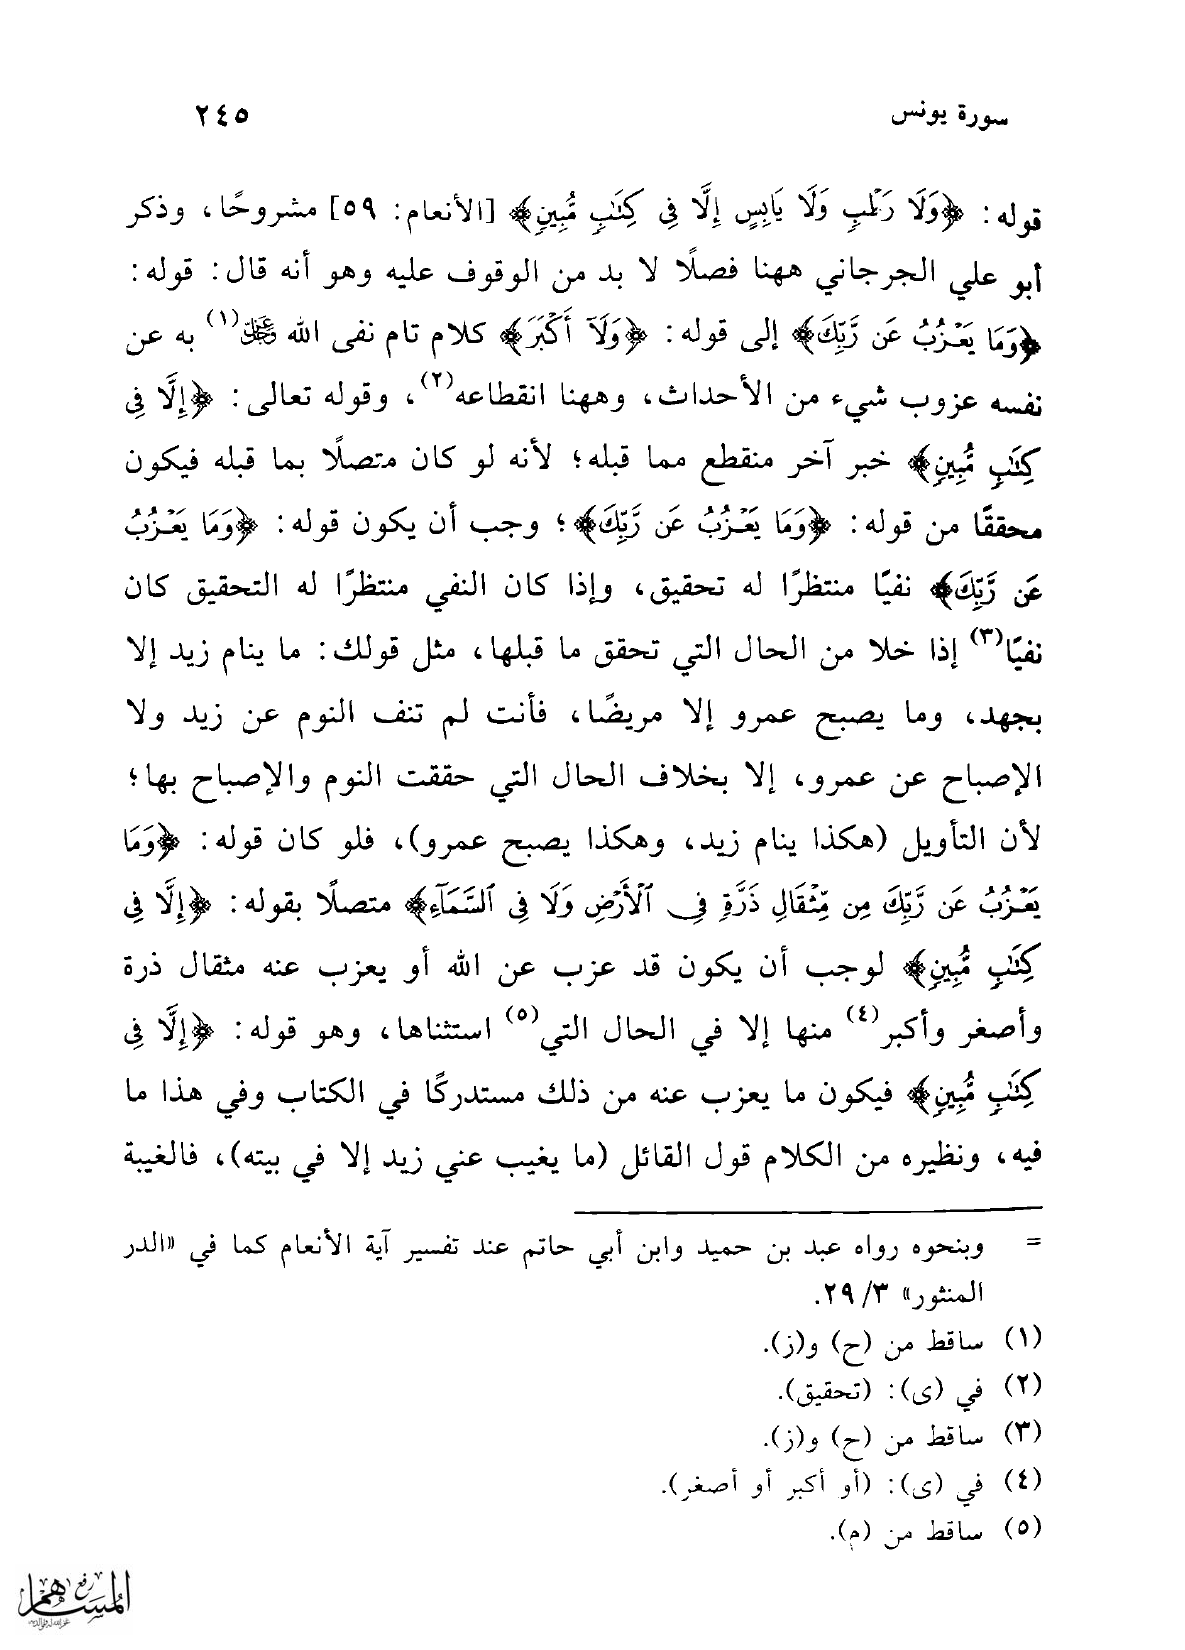 سورة يونس ٢٤٥
قوله: ﴿وَلَا رَطْبٍ وَلَا يَابِسٍ إِلَّا فِي كِتَابٍ مُّبِينٍ﴾ [الأنعام: ٥٩] مشروحًا، وذكر
أبو علي الجرجاني ههنا فصلًا لا بد من الوقوف عليه وهو أنه قال: قوله:
﴿وَمَا يَعْزُبُ عَن رَّبِّكَ﴾ إلى قوله: ﴿وَلَآ أَكْبَرَ﴾ كلام تام نفى الله عَزَّوَجَلَّ(١) به عن
نفسه عزوب شيء من الأحداث، وههنا انقطاعه(٢)، وقوله تعالى: ﴿إِلَّا فِي
كِتَابٍ مُّبِينٍ﴾ خبر آخر منقطع مما قبله؛ لأنه لو كان متصلًا بما قبله فيكون
محققًا من قوله: ﴿وَمَا يَعْزُبُ عَن رَّبِّكَ﴾؛ وجب أن يكون قوله: ﴿وَمَا يَعْزُبُ
عَن رَّبِّكَ﴾ نفيًا منتظرًا له تحقيق، وإذا كان النفي منتظرًا له التحقيق كان
نفيًا(٣) إذا خلا من الحال التي تحقق ما قبلها، مثل قولك: ما ينام زيد إلا
بجهد، وما يصبح عمرو إلا مريضًا، فأنت لم تنف النوم عن زيد ولا
الإصباح عن عمرو، إلا بخلاف الحال التي حققت النوم والإصباح بها؛
لأن التأويل (هكذا ينام زيد، وهكذا يصبح عمرو)، فلو كان قوله: ﴿وَمَا
يَعْزُبُ عَن رَّبِّكَ مِن مِّثْقَالِ ذَرَّةٍ فِي ٱلْأَرْضِ وَلَا فِي ٱلسَّمَآءِ﴾ متصلًا بقوله: ﴿إِلَّا فِي
كِتَابٍ مُّبِينٍ﴾ لوجب أن يكون قد عزب عن الله أو يعزب عنه مثقال ذرة
وأصغر وأكبر(٤) منها إلا في الحال التي(٥) استثناها، وهو قوله: ﴿إِلَّا فِي
كِتَابٍ مُّبِينٍ﴾ فيكون ما يعزب عنه من ذلك مستدركًا في الكتاب وفي هذا ما
فيه، ونظيره من الكلام قول القائل (ما يغيب عني زيد إلا في بيته)، فالغيبة
= وبنحوه رواه عبد بن حميد وابن أبي حاتم عند تفسير آية الأنعام كما في «الدر
المنثور» ٣/ ٢٩.
(١) ساقط من (ح) و(ز).
(٢) في (ى): (تحقيق).
(٣) ساقط من (ح) و(ز).
(٤) في (ى): (أو أكبر أو أصغر).
(٥) ساقط من (م).